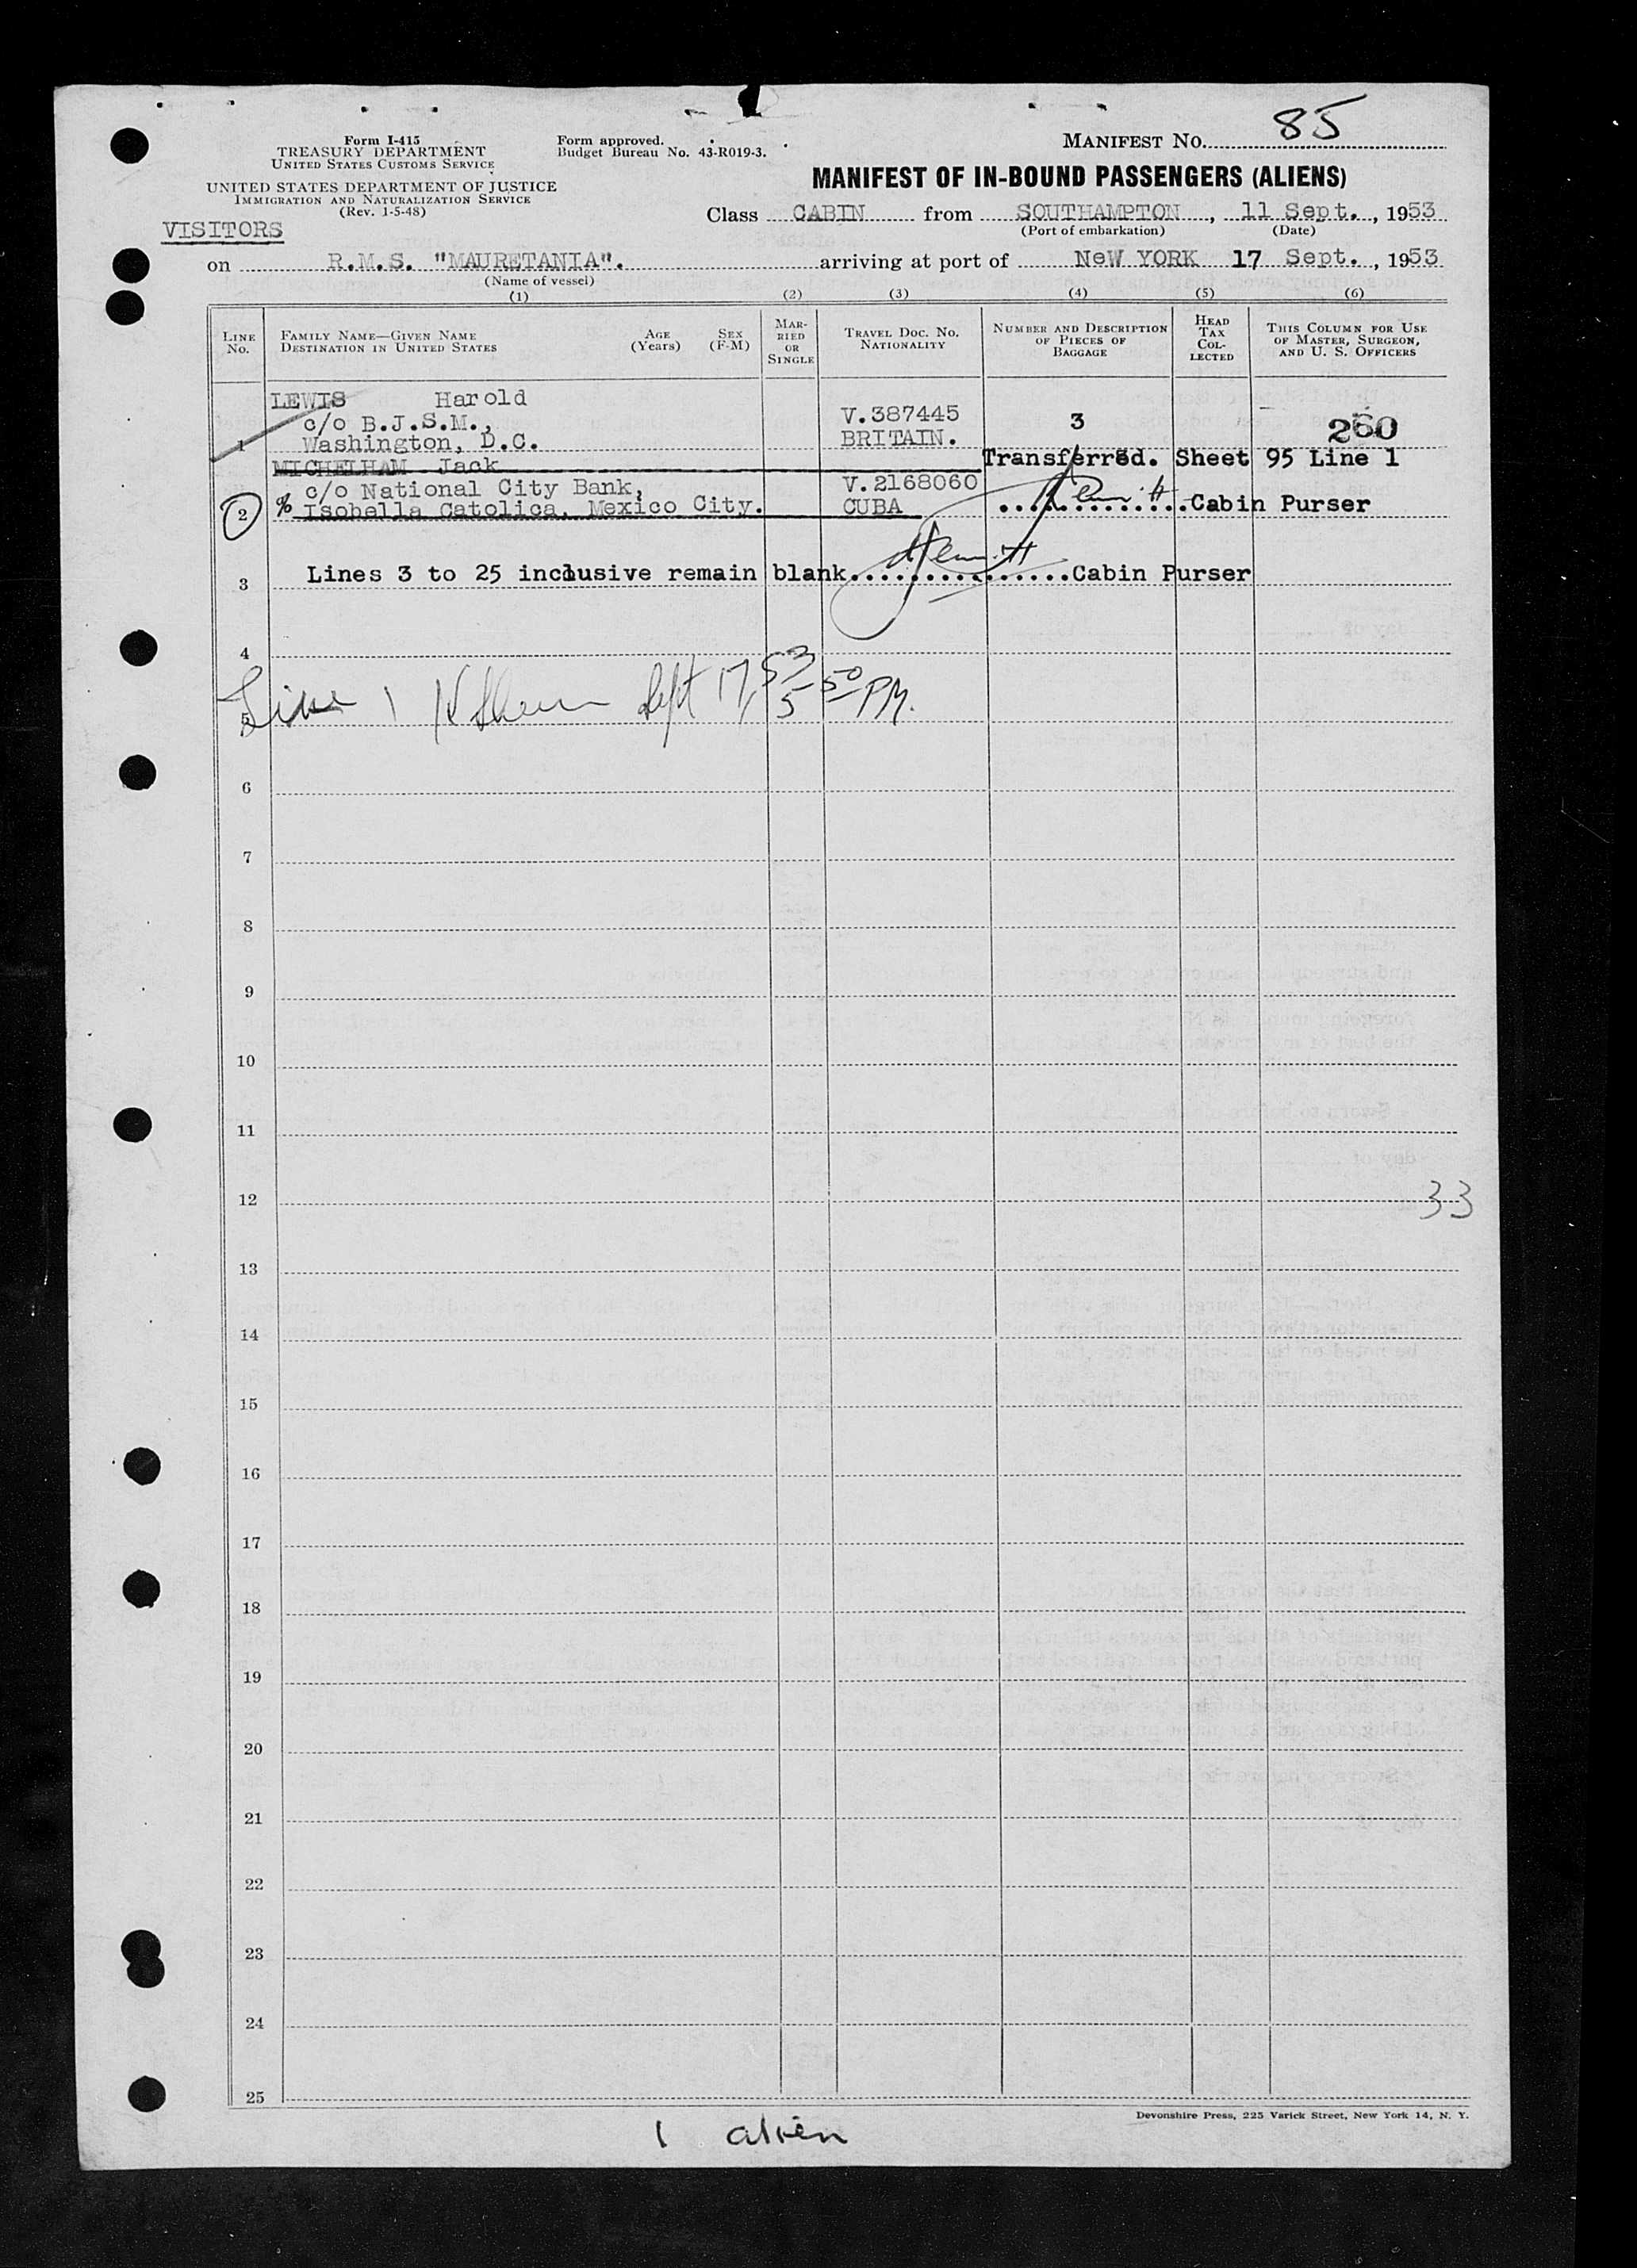 Form I-415
TREASURY DEPARTMENT
UNITED STATES CUSTOMS SERVICE
UNITED STATES DEPARTMENT OF JUSTICE
IMMIGRATION AND NATURALIZATION SERVICE
(Rev. 1-5-48)
Form approved.
Budget Bureau No. 43-R019-3.
MANIFEST NO. 85
MANIFEST OF IN-BOUND PASSENGERS (ALIENS)
Class CABIN from SOUTHAMPTON, 11 Sept., 1953
(Port of embarkation) (Date)
VISITORS
on R.M.S. "MAURETANIA". arriving at port of NeW YORK 17 Sept., 1953
(Name of vessel)
(1) (2) (3) (4) (5) (6)
LINE No.
FAMILY NAME—GIVEN NAME
DESTINATION IN UNITED STATES
AGE (Years)
SEX (F-M)
MARRIED OR SINGLE
TRAVEL DOC. NO.
NATIONALITY
NUMBER AND DESCRIPTION OF PIECES OF BAGGAGE
HEAD TAX COLLECTED
THIS COLUMN FOR USE OF MASTER, SURGEON, AND U. S. OFFICERS
LEWIS Harold
c/o B.J.S.M., V.387445 3 260
1 Washington, D.C. BRITAIN.
MICHELHAM Jack Transferred. Sheet 95 Line 1
c/o National City Bank, V.2168060
2 % Isobella Catolica, Mexico City. CUBA ............Cabin Purser
3 Lines 3 to 25 inclusive remain blank...............Cabin Purser
4
Line 1 Sept 17, 53 5 50 PM.
5
6
7
8
9
10
11
12 33
13
14
15
16
17
18
19
20
21
22
23
24
25
Devonshire Press, 225 Varick Street, New York 14, N. Y.
1 alien